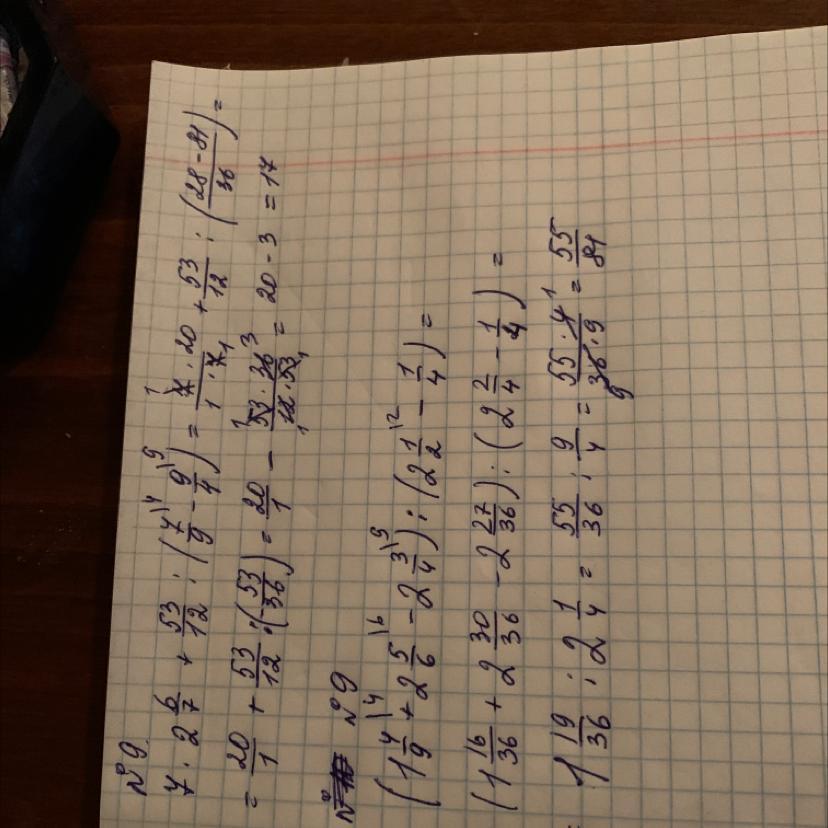 №9.
7 · 2 6/7 + 53/12 : (7/9 \4 - 9/4 \9) = 7 · 20 / 1 · 7 + 53/12 : (28 - 81 / 36) =
= 20/1 + 53/12 : (-53/36) = 20/1 - 53 · 36 / 12 · 53 = 20 - 3 = 17
№9
(1 4/9 \4 + 2 5/6 \6 - 2 3/4 \9) : (2 1/2 \2 - 1/4) =
(1 16/36 + 2 30/36 - 2 27/36) : (2 2/4 - 1/4) =
1 19/36 : 2 1/4 = 55/36 : 9/4 = 55 · 4 / 36 · 9 = 55/81